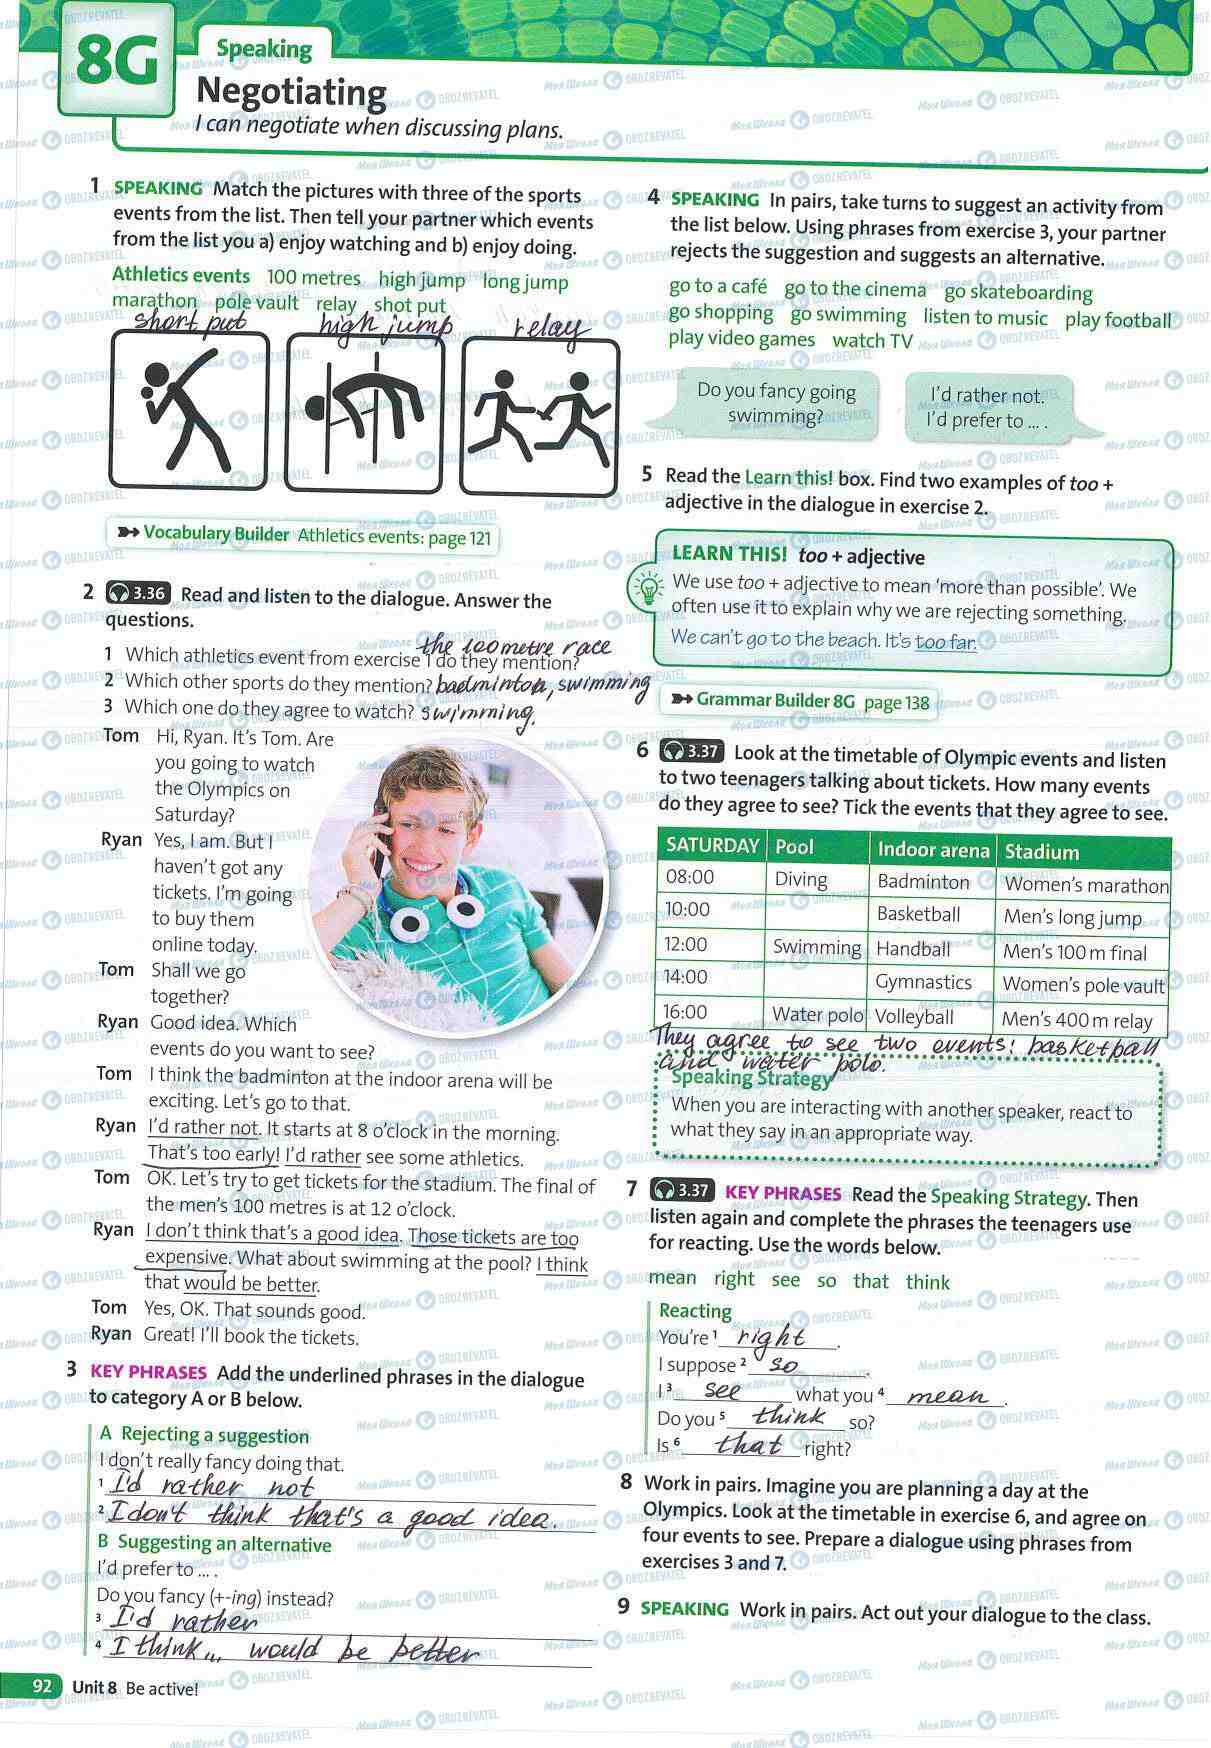 8G
Speaking
Negotiating
I can negotiate when discussing plans.
1 SPEAKING Match the pictures with three of the sports
events from the list. Then tell your partner which events
from the list you a) enjoy watching and b) enjoy doing.
Athletics events 100 metres high jump long jump
marathon pole vault relay shot put
short put high jump relay
Vocabulary Builder Athletics events: page 121
2 3.36 Read and listen to the dialogue. Answer the
questions.
the 100 metre race
1 Which athletics event from exercise 1 do they mention?
2 Which other sports do they mention? badminton, swimming
3 Which one do they agree to watch? swimming.
Tom Hi, Ryan. It's Tom. Are
you going to watch
the Olympics on
Saturday?
Ryan Yes, I am. But I
haven't got any
tickets. I'm going
to buy them
online today.
Tom Shall we go
together?
Ryan Good idea. Which
events do you want to see?
Tom I think the badminton at the indoor arena will be
exciting. Let's go to that.
Ryan I'd rather not. It starts at 8 o'clock in the morning.
That's too early! I'd rather see some athletics.
Tom OK. Let's try to get tickets for the stadium. The final of
the men's 100 metres is at 12 o'clock.
Ryan I don't think that's a good idea. Those tickets are too
expensive. What about swimming at the pool? I think
that would be better.
Tom Yes, OK. That sounds good.
Ryan Great! I'll book the tickets.
3 KEY PHRASES Add the underlined phrases in the dialogue
to category A or B below.
A Rejecting a suggestion
I don't really fancy doing that.
1 I'd rather not
2 I don't think that's a good idea.
B Suggesting an alternative
I'd prefer to ... .
Do you fancy (+-ing) instead?
3 I'd rather
4 I think ... would be better
92 Unit 8 Be active!
4 SPEAKING In pairs, take turns to suggest an activity from
the list below. Using phrases from exercise 3, your partner
rejects the suggestion and suggests an alternative.
go to a café go to the cinema go skateboarding
go shopping go swimming listen to music play football
play video games watch TV
Do you fancy going
swimming?
I'd rather not.
I'd prefer to ... .
5 Read the Learn this! box. Find two examples of too +
adjective in the dialogue in exercise 2.
LEARN THIS! too + adjective
We use too + adjective to mean 'more than possible'. We
often use it to explain why we are rejecting something.
We can't go to the beach. It's too far.
Grammar Builder 8G page 138
6 3.37 Look at the timetable of Olympic events and listen
to two teenagers talking about tickets. How many events
do they agree to see? Tick the events that they agree to see.
SATURDAY Pool Indoor arena Stadium
08:00 Diving Badminton Women's marathon
10:00 Basketball Men's long jump
12:00 Swimming Handball Men's 100 m final
14:00 Gymnastics Women's pole vault
16:00 Water polo Volleyball Men's 400 m relay
They agree to see two events: basketball
and water polo.
Speaking Strategy
When you are interacting with another speaker, react to
what they say in an appropriate way.
7 3.37 KEY PHRASES Read the Speaking Strategy. Then
listen again and complete the phrases the teenagers use
for reacting. Use the words below.
mean right see so that think
Reacting
You're 1 right.
I suppose 2 so.
I 3 see what you 4 mean.
Do you 5 think so?
Is 6 that right?
8 Work in pairs. Imagine you are planning a day at the
Olympics. Look at the timetable in exercise 6, and agree on
four events to see. Prepare a dialogue using phrases from
exercises 3 and 7.
9 SPEAKING Work in pairs. Act out your dialogue to the class.